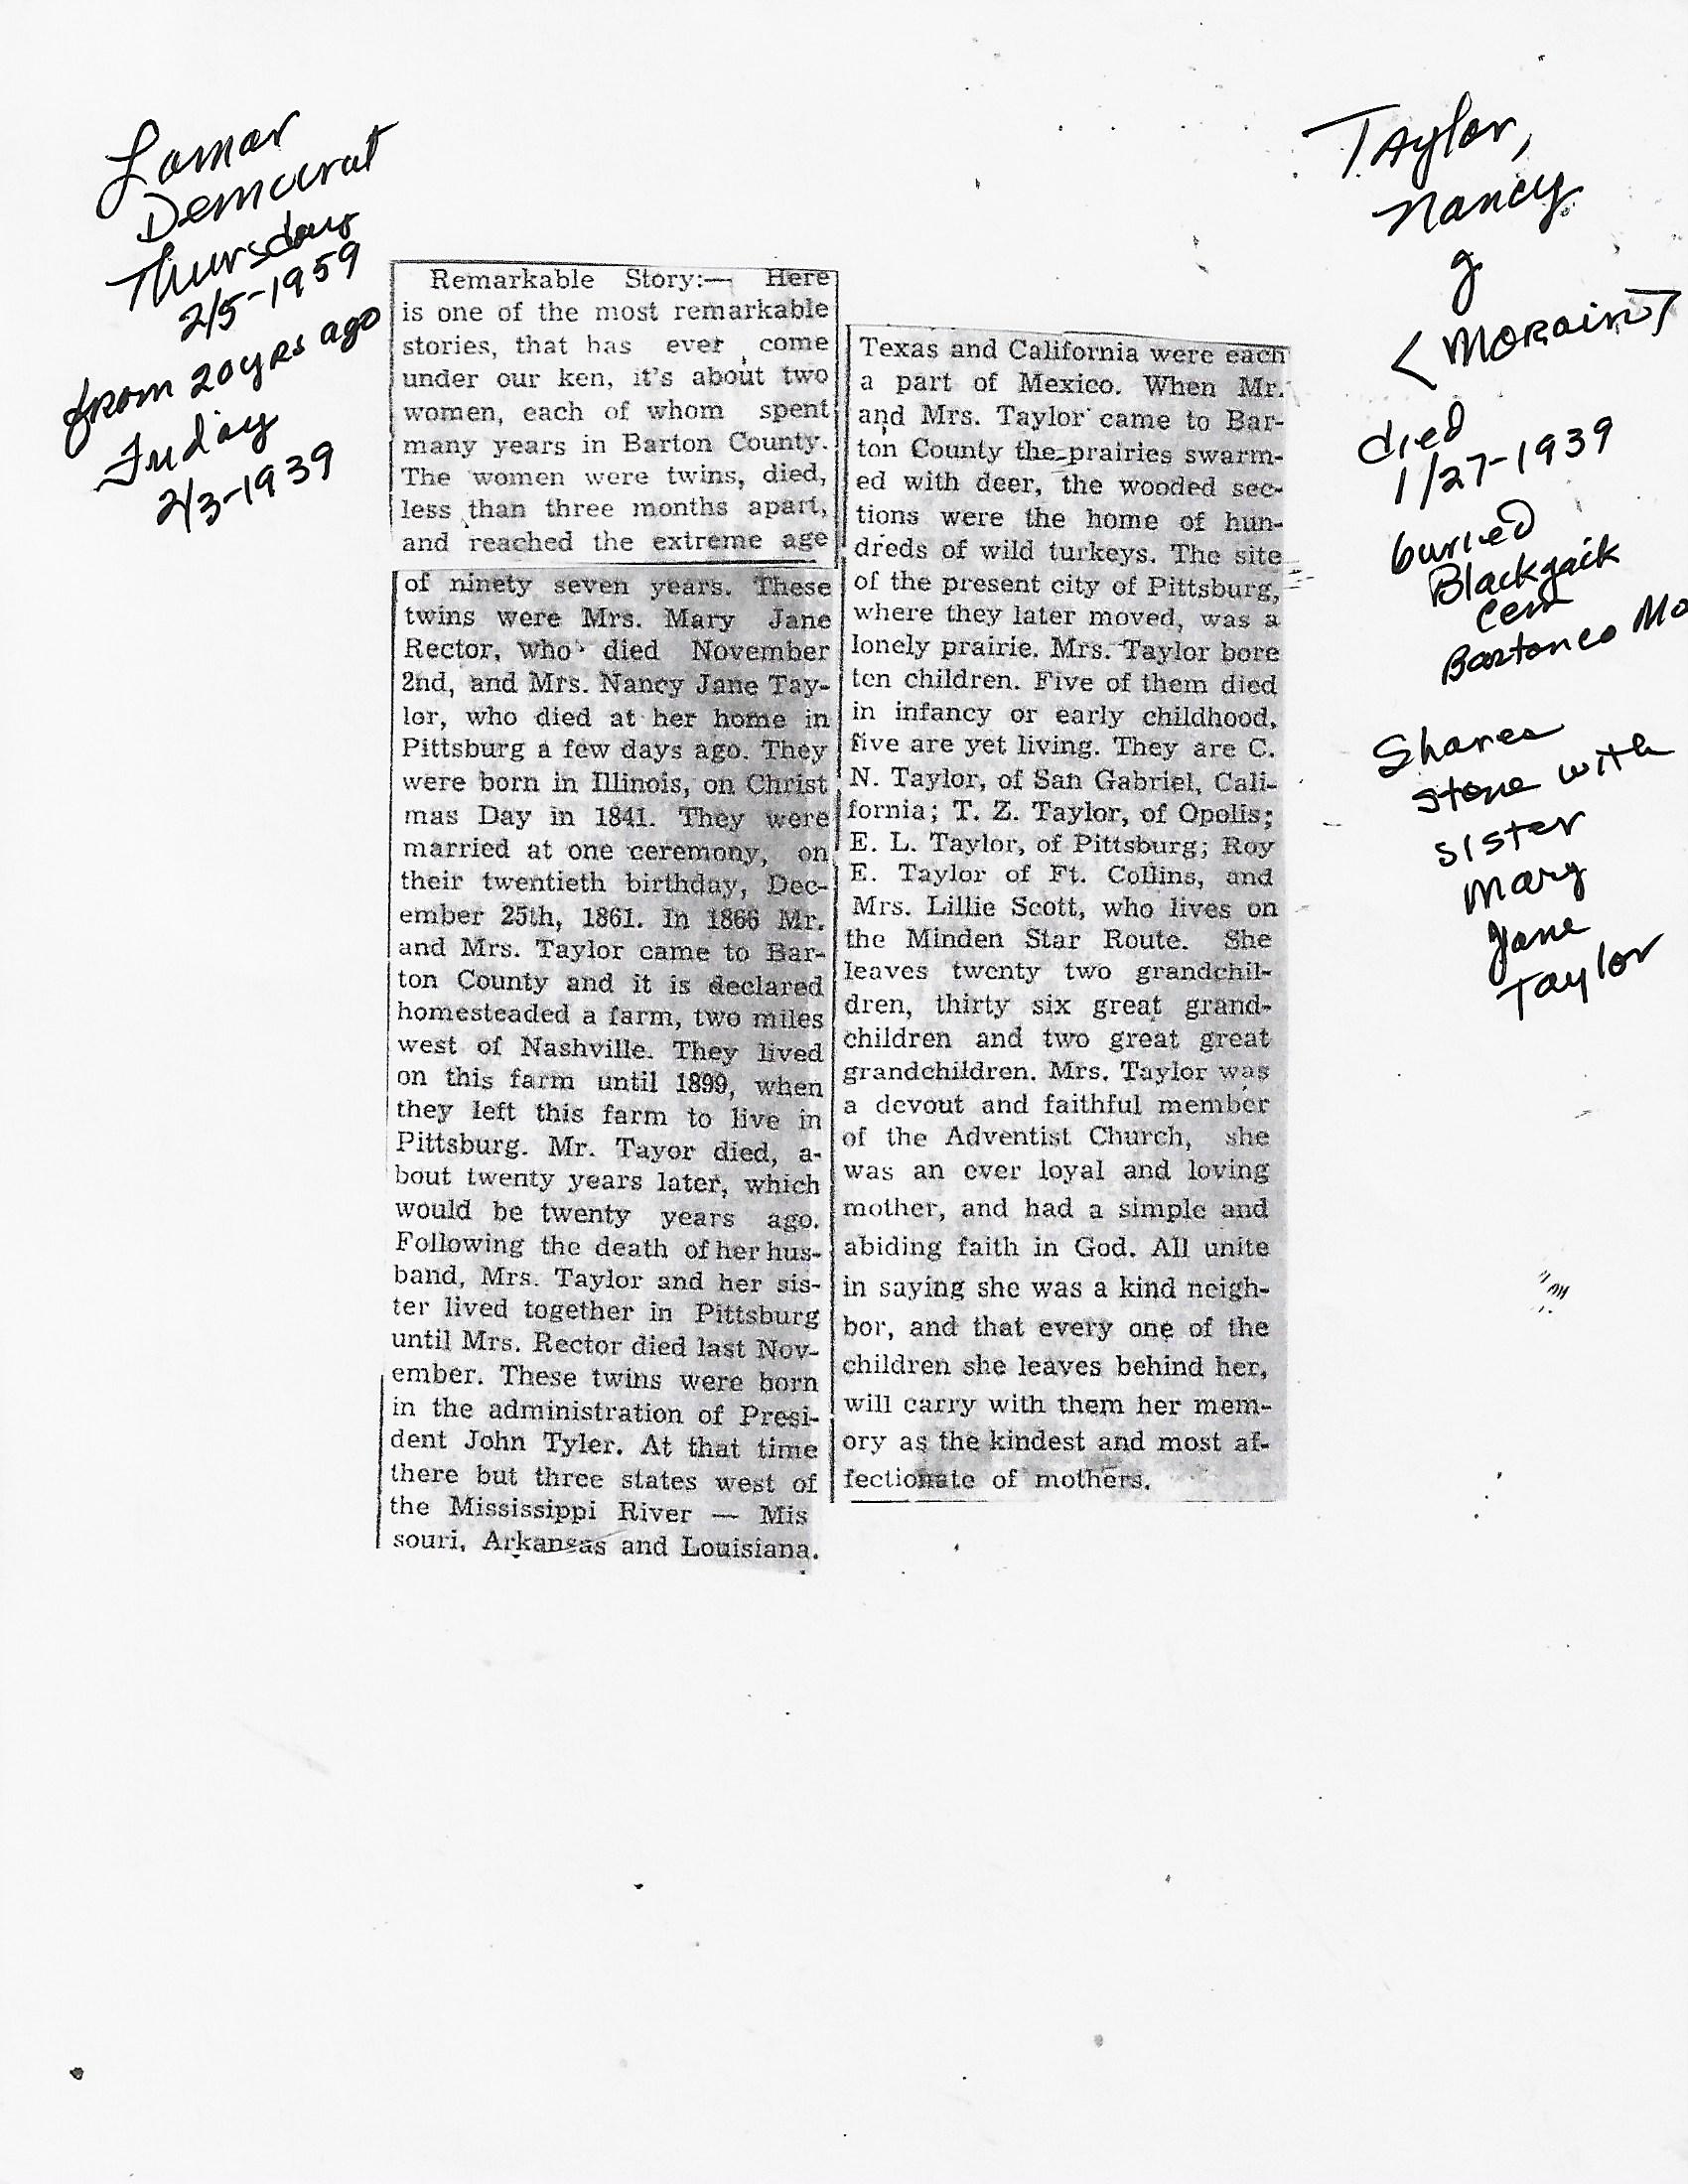 Lamar
Democrat
Thursday
2/5-1959
from 20yrs ago
Friday
2/3-1939
Remarkable Story:— Here
is one of the most remarkable
stories, that has ever come
under our ken, it's about two
women, each of whom spent
many years in Barton County.
The women were twins, died,
less than three months apart,
and reached the extreme age
of ninety seven years. These
twins were Mrs. Mary Jane
Rector, who died November
2nd, and Mrs. Nancy Jane Tay-
lor, who died at her home in
Pittsburg a few days ago. They
were born in Illinois, on Christ
mas Day in 1841. They were
married at one ceremony, on
their twentieth birthday, Dec-
ember 25th, 1861. In 1866 Mr.
and Mrs. Taylor came to Bar-
ton County and it is declared
homesteaded a farm, two miles
west of Nashville. They lived
on this farm until 1899, when
they left this farm to live in
Pittsburg. Mr. Tayor died, a-
bout twenty years later, which
would be twenty years ago.
Following the death of her hus-
band, Mrs. Taylor and her sis-
ter lived together in Pittsburg
until Mrs. Rector died last Nov-
ember. These twins were born
in the administration of Presi-
dent John Tyler. At that time
there but three states west of
the Mississippi River — Mis
souri, Arkansas and Louisiana.
Texas and California were each
a part of Mexico. When Mr.
and Mrs. Taylor came to Bar-
ton County the prairies swarm-
ed with deer, the wooded sec-
tions were the home of hun-
dreds of wild turkeys. The site
of the present city of Pittsburg,
where they later moved, was a
lonely prairie. Mrs. Taylor bore
ten children. Five of them died
in infancy or early childhood,
five are yet living. They are C.
N. Taylor, of San Gabriel, Cali-
fornia; T. Z. Taylor, of Opolis;
E. L. Taylor, of Pittsburg; Roy
E. Taylor of Ft. Collins, and
Mrs. Lillie Scott, who lives on
the Minden Star Route. She
leaves twenty two grandchil-
dren, thirty six great grand-
children and two great great
grandchildren. Mrs. Taylor was
a devout and faithful member
of the Adventist Church, she
was an ever loyal and loving
mother, and had a simple and
abiding faith in God. All unite
in saying she was a kind neigh-
bor, and that every one of the
children she leaves behind her,
will carry with them her mem-
ory as the kindest and most af-
fectionate of mothers.
Taylor,
Nancy
J
<Morain>
died
1/27-1939
buried
Blackjack
Cem
Barton Co Mo
Shares
stone with
sister
Mary
Jane
Taylor